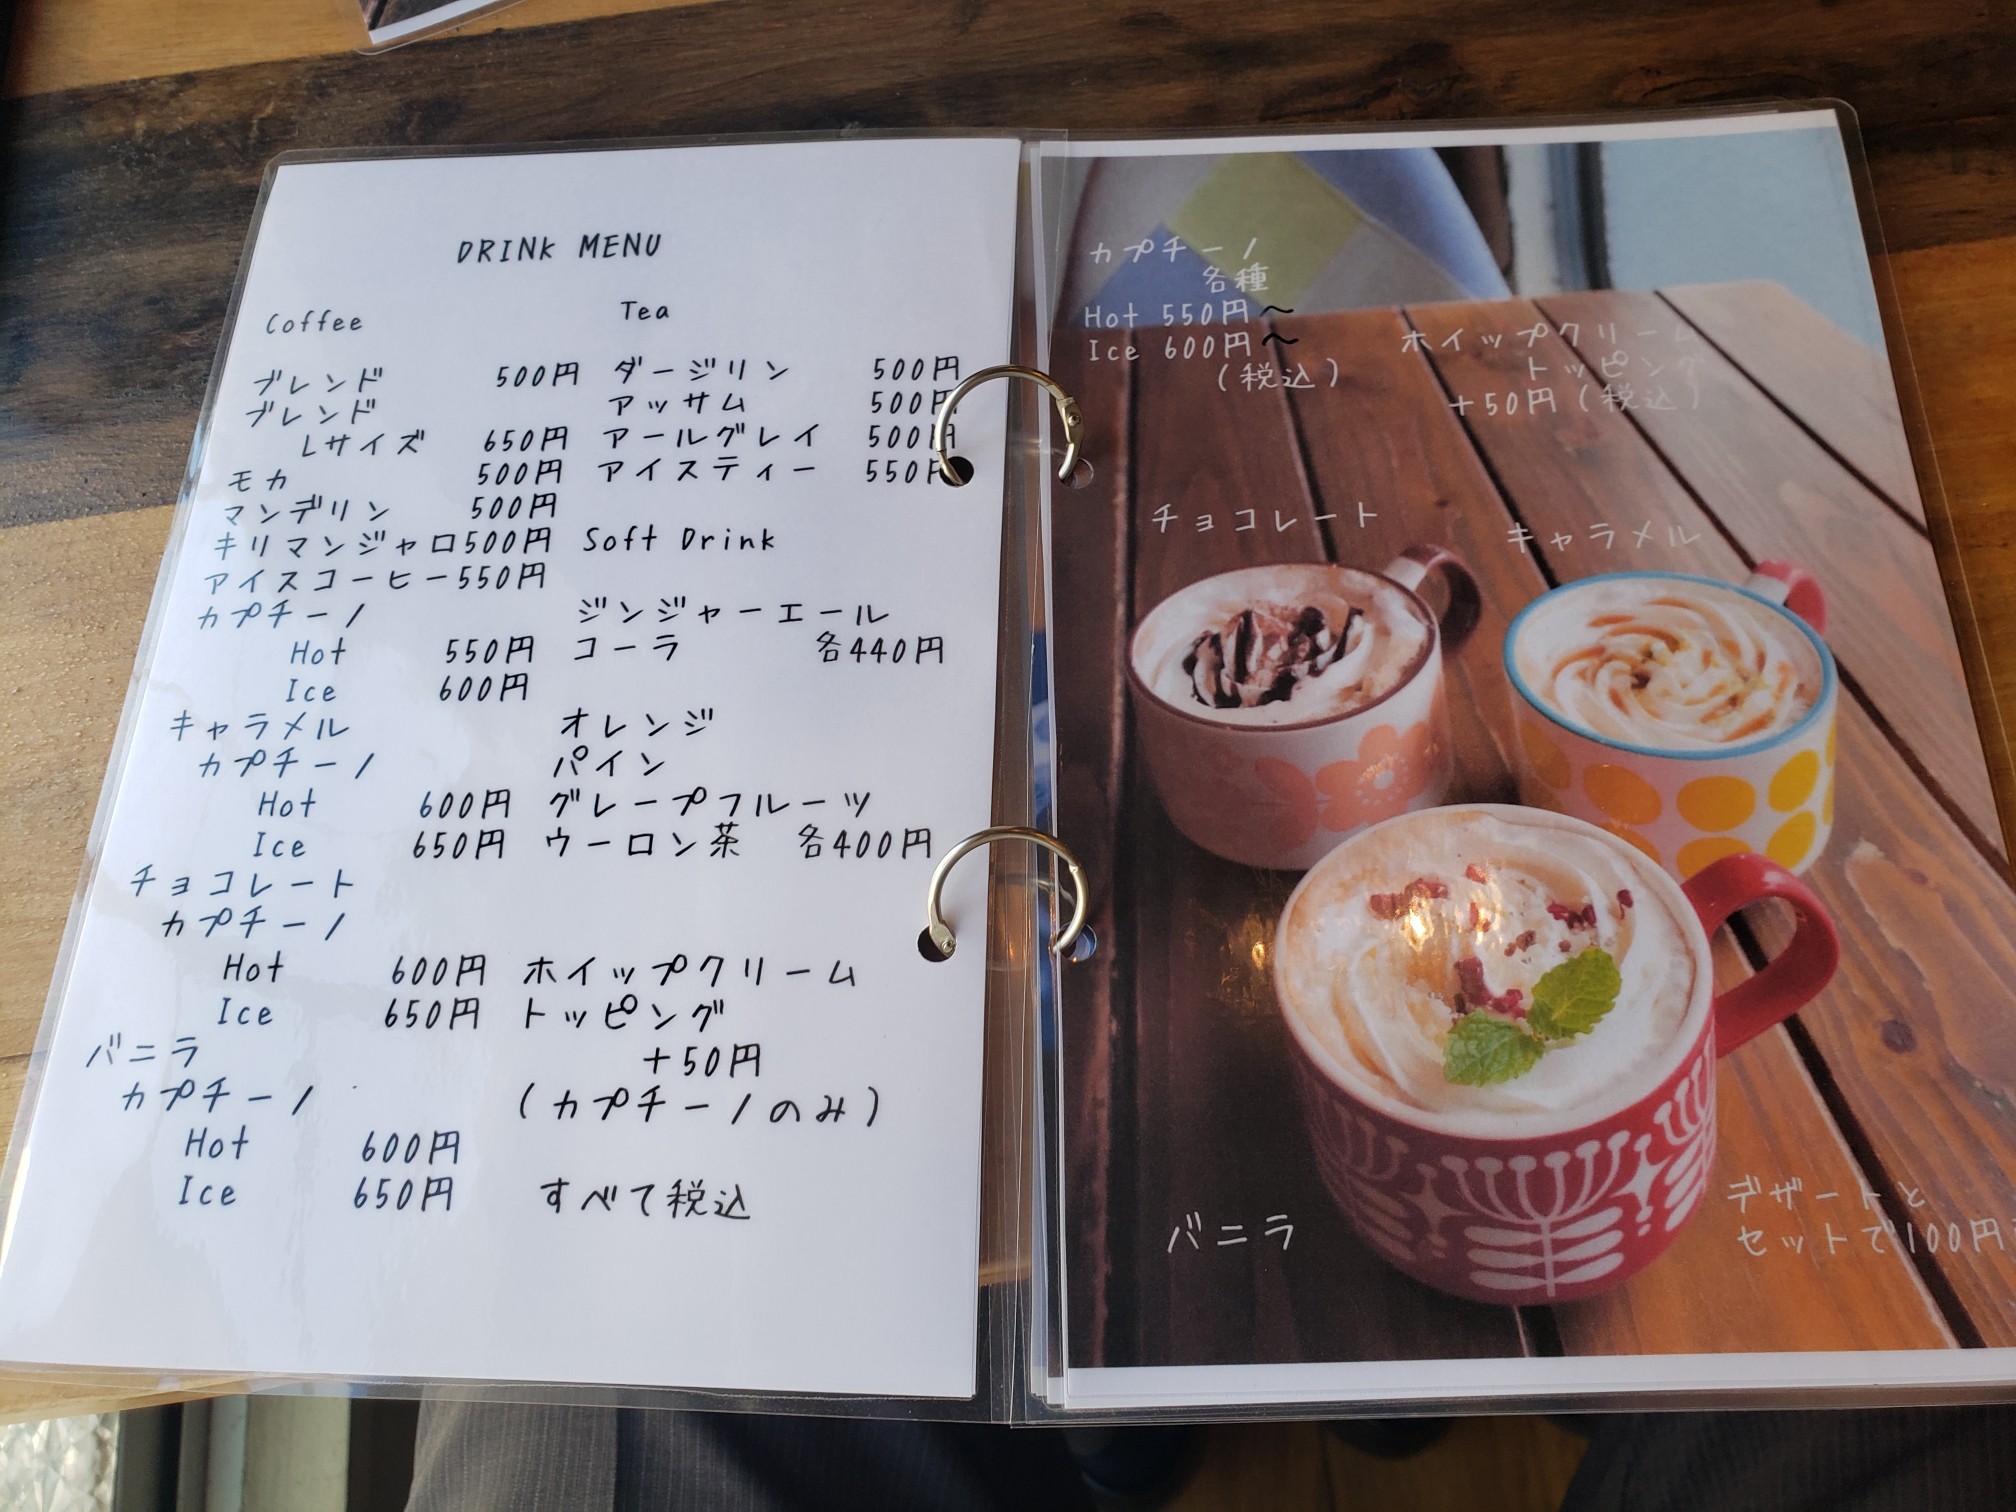 DRINK MENU
Coffee
ブレンド 500円
ブレンド
Lサイズ 650円
モカ 500円
マンデリン 500円
キリマンジャロ500円
アイスコーヒー550円
カプチーノ
Hot 550円
Ice 600円
キャラメル
カプチーノ
Hot 600円
Ice 650円
チョコレート
カプチーノ
Hot 600円
Ice 650円
バニラ
カプチーノ
Hot 600円
Ice 650円
Tea
ダージリン 500円
アッサム 500円
アールグレイ 500円
アイスティー 550円
Soft Drink
ジンジャーエール
コーラ 各440円
オレンジ
パイン
グレープフルーツ
ウーロン茶 各400円
ホイップクリーム
トッピング
+50円
(カプチーノのみ)
すべて税込
カプチーノ
各種
Hot 550円〜
Ice 600円〜
(税込)
ホイップクリーム
トッピング
+50円(税込)
チョコレート
キャラメル
バニラ
デザートと
セットで100円